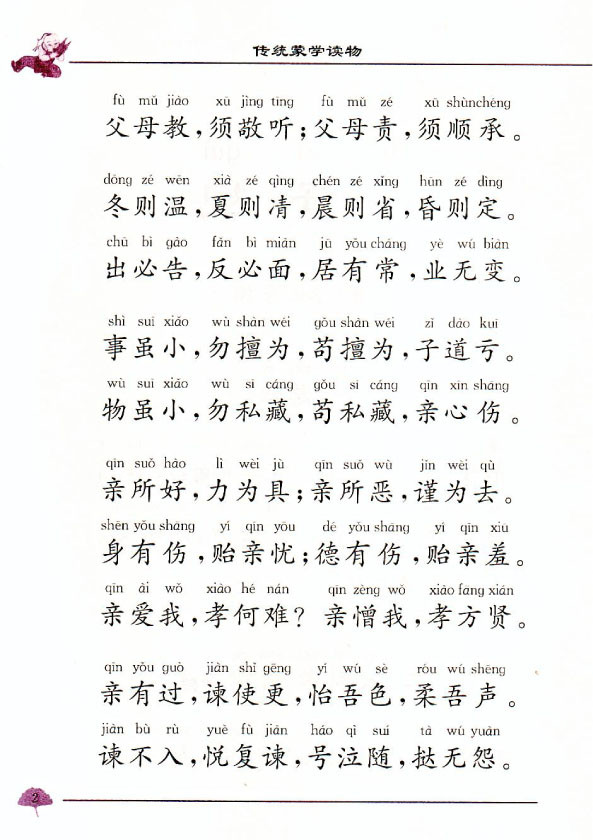 传统蒙学读物
fù mǔ jiào xū jìng tīng fù mǔ zé xū shùnchéng
父母教,须敬听;父母责,须顺承。
dōng zé wēn xià zé qìng chén zé xǐng hūn zé dìng
冬则温,夏则凊,晨则省,昏则定。
chū bì gào fǎn bì miàn jū yǒu cháng yè wú biàn
出必告,反必面,居有常,业无变。
shì suī xiǎo wù shàn wéi gǒu shàn wéi zǐ dào kuī
事虽小,勿擅为,苟擅为,子道亏。
wù suī xiǎo wù sī cáng gǒu sī cáng qīn xīn shāng
物虽小,勿私藏,苟私藏,亲心伤。
qīn suǒ hào lì wèi jù qīn suǒ wù jǐn wèi qù
亲所好,力为具;亲所恶,谨为去。
shēn yǒu shāng yí qīn yōu dé yǒu shāng yí qīn xiū
身有伤,贻亲忧;德有伤,贻亲羞。
qīn ài wǒ xiào hé nán qīn zèng wǒ xiào fāng xián
亲爱我,孝何难?亲憎我,孝方贤。
qīn yǒu guò jiàn shǐ gēng yí wú sè róu wú shēng
亲有过,谏使更,怡吾色,柔吾声。
jiàn bù rù yuè fù jiàn háo qì suí tà wú yuàn
谏不入,悦复谏,号泣随,挞无怨。
2